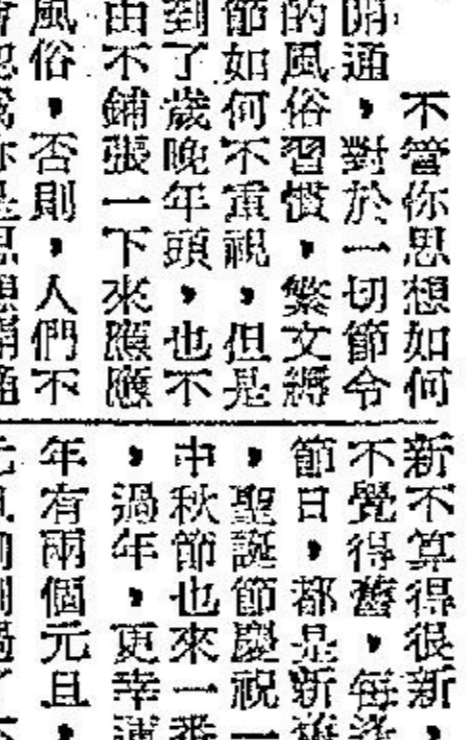 不管你思想如何
開通，對於一切節令
的風俗習慣，繁文縟
節如何不重視，但是
到了歲晚年頭，也不
由不鋪張一下來應應
風俗，否則，人們不
新不算得很新，
不覺得舊，每逢
節日，都是新舊
，聖誕節慶祝一
中秋節也來一番
，過年，更幸運
年有兩個元旦，